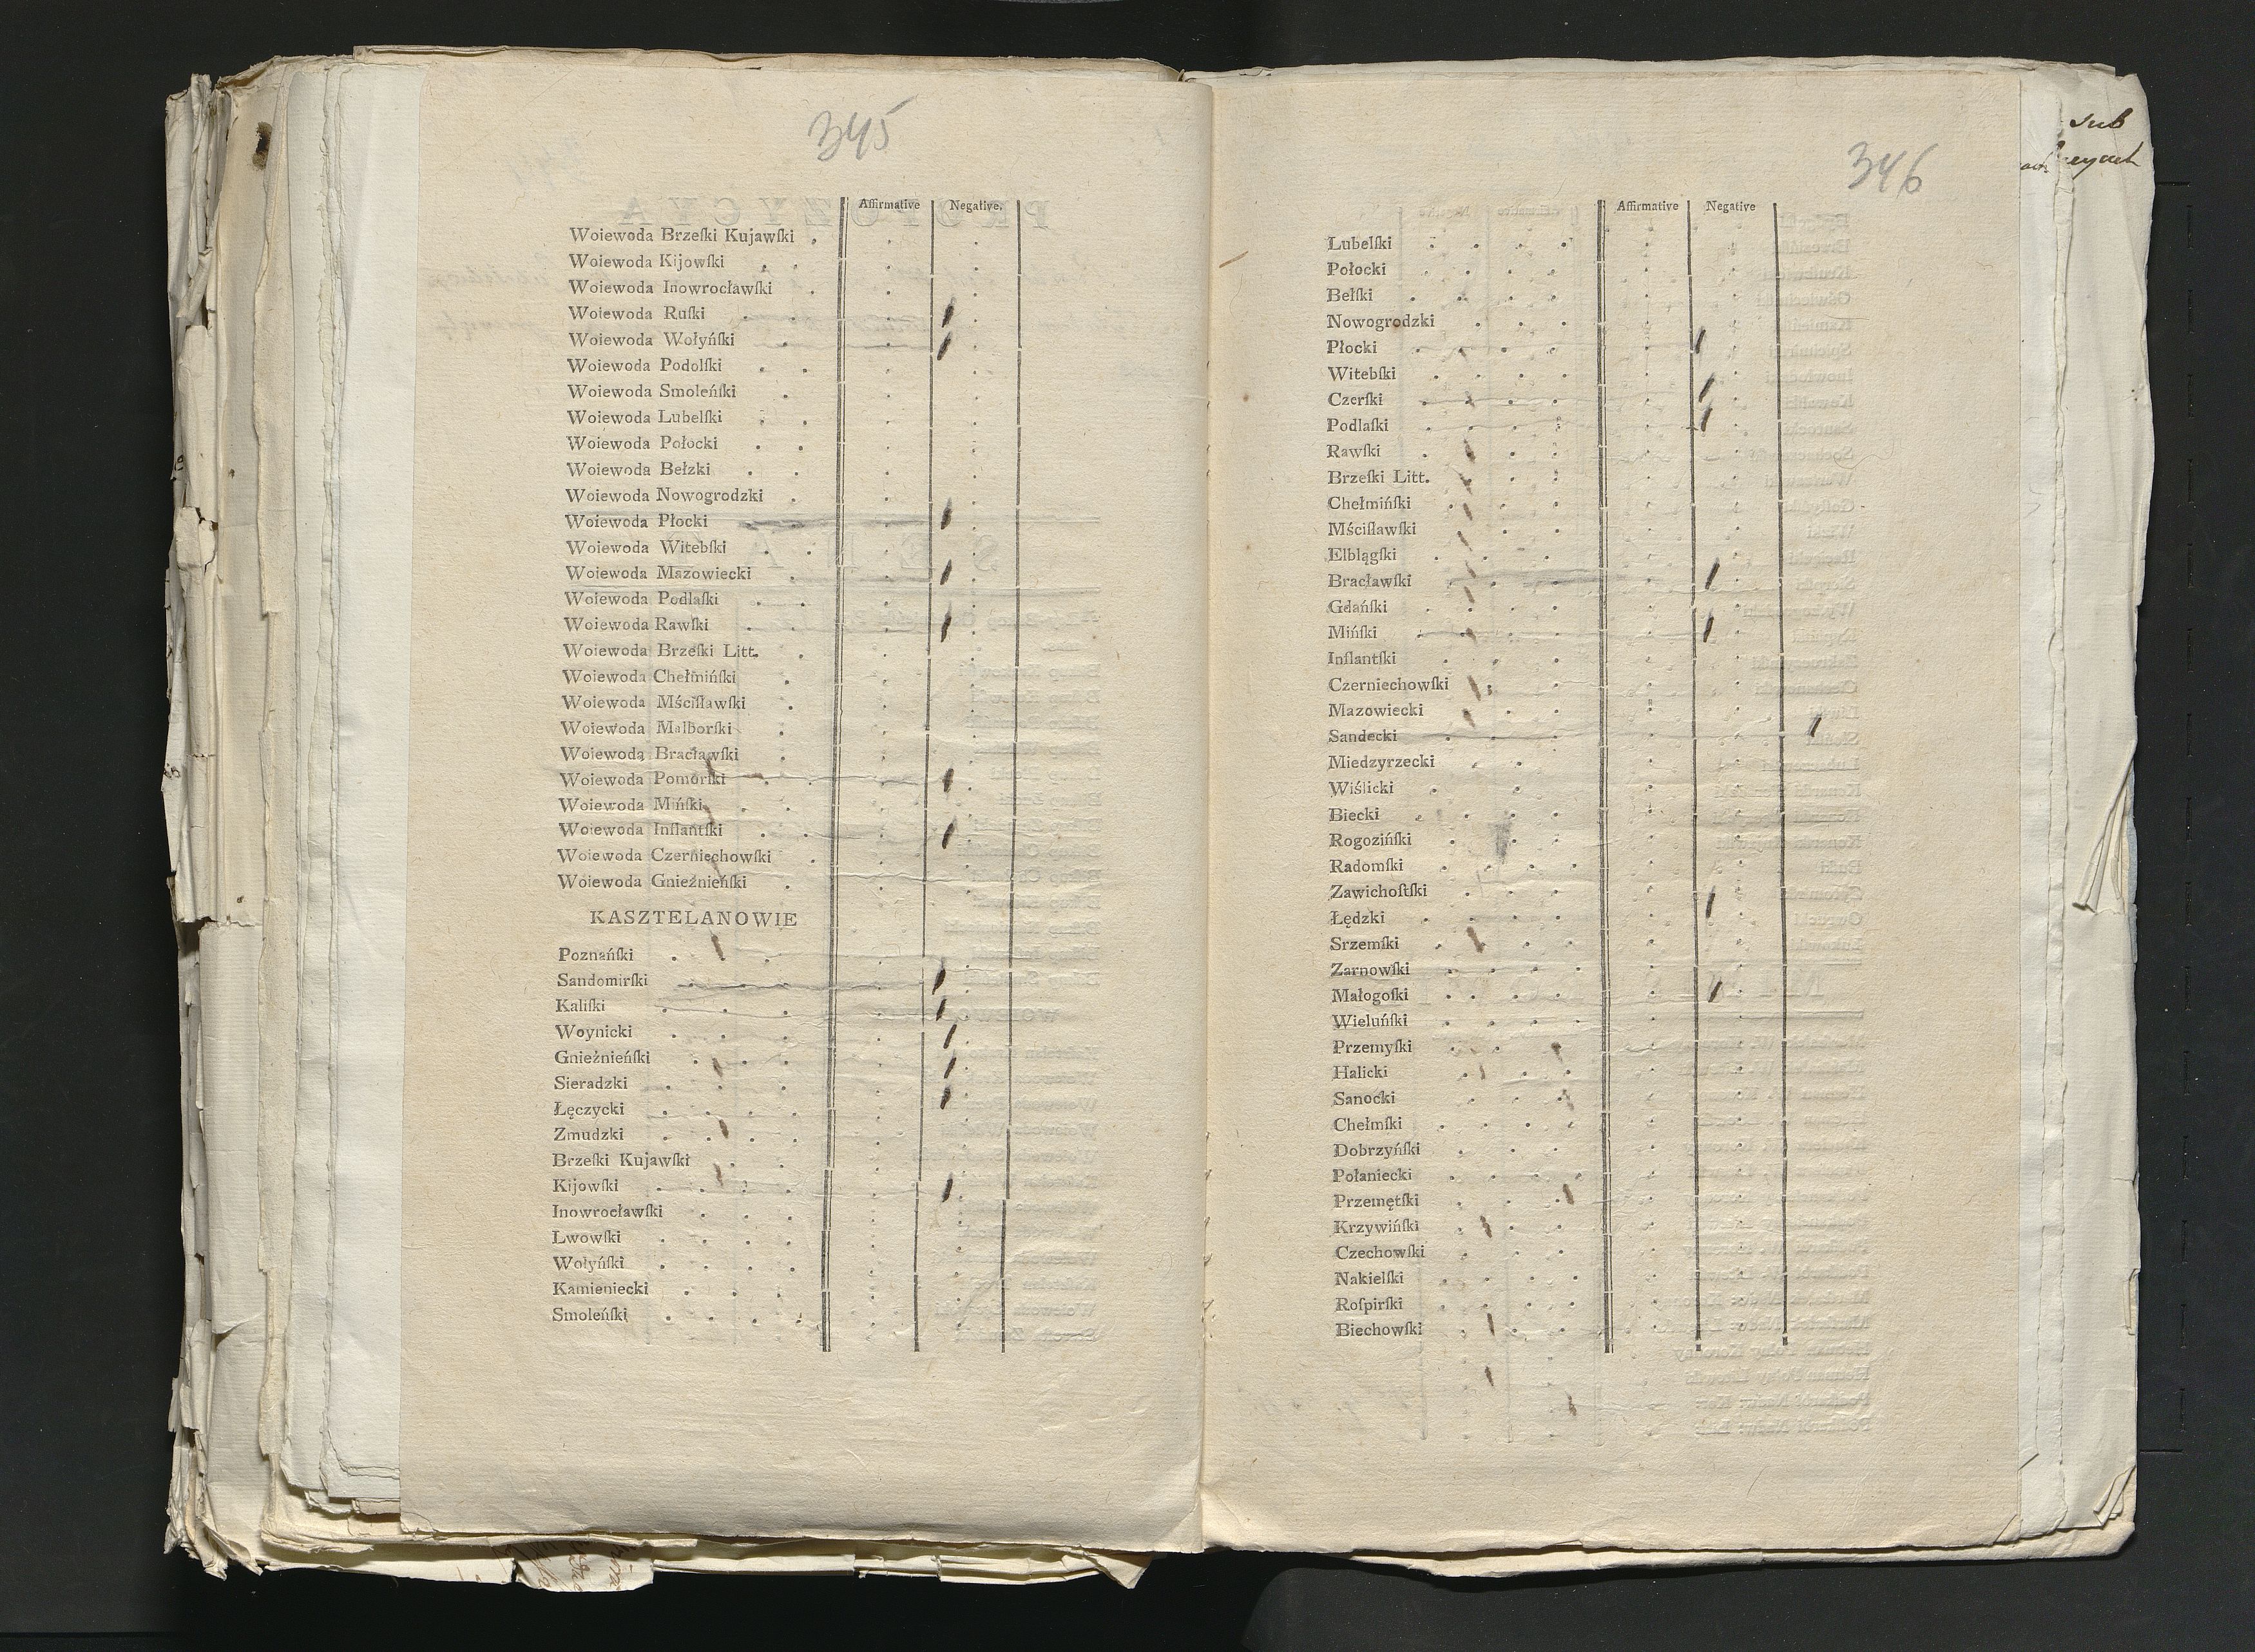 345
Affirmative Negative.
Woiewoda Brzeſki Kujawſki
Woiewoda Kijowſki
Woiewoda Inowrocławſki
Woiewoda Ruſki
Woiewoda Wołyńſki
Woiewoda Podolſki
Woiewoda Smoleńſki
Woiewoda Lubelſki
Woiewoda Połocki
Woiewoda Bełzki
Woiewoda Nowogrodzki
Woiewoda Płocki
Woiewoda Witebſki
Woiewoda Mazowiecki
Woiewoda Podlaſki
Woiewoda Rawſki
Woiewoda Brzeſki Litt.
Woiewoda Chełmińſki
Woiewoda Mściſławſki
Woiewoda Malborſki
Woiewoda Bracławſki
Woiewoda Pomorſki
Woiewoda Mińſki
Woiewoda Inflantſki
Woiewoda Czerniechowſki
Woiewoda Gnieźnieńſki
KASZTELANOWIE
Poznańſki
Sandomirſki
Kaliſki
Woynicki
Gnieźnieńſki
Sieradzki
Łęczycki
Zmudzki
Brzeſki Kujawſki
Kijowſki
Inowrocławſki
Lwowſki
Wołyńſki
Kamieniecki
Smoleńſki
346
Affirmative Negative
Lubelſki
Połocki
Bełſki
Nowogrodzki
Płocki
Witebſki
Czerſki
Podlaſki
Rawſki
Brzeſki Litt.
Chełmińſki
Mściſławſki
Elblągſki
Bracławſki
Gdańſki
Mińſki
Inflantſki
Czerniechowſki
Mazowiecki
Sandecki
Miedzyrzecki
Wiślicki
Biecki
Rogozińſki
Radomſki
Zawichoſtſki
Łędzki
Srzemſki
Zarnowſki
Małogoſki
Wieluńſki
Przemyſki
Halicki
Sanocki
Chełmſki
Dobrzyńſki
Połaniecki
Przemętſki
Krzywińſki
Czechowſki
Nakielſki
Roſpirſki
Biechowſki
sub